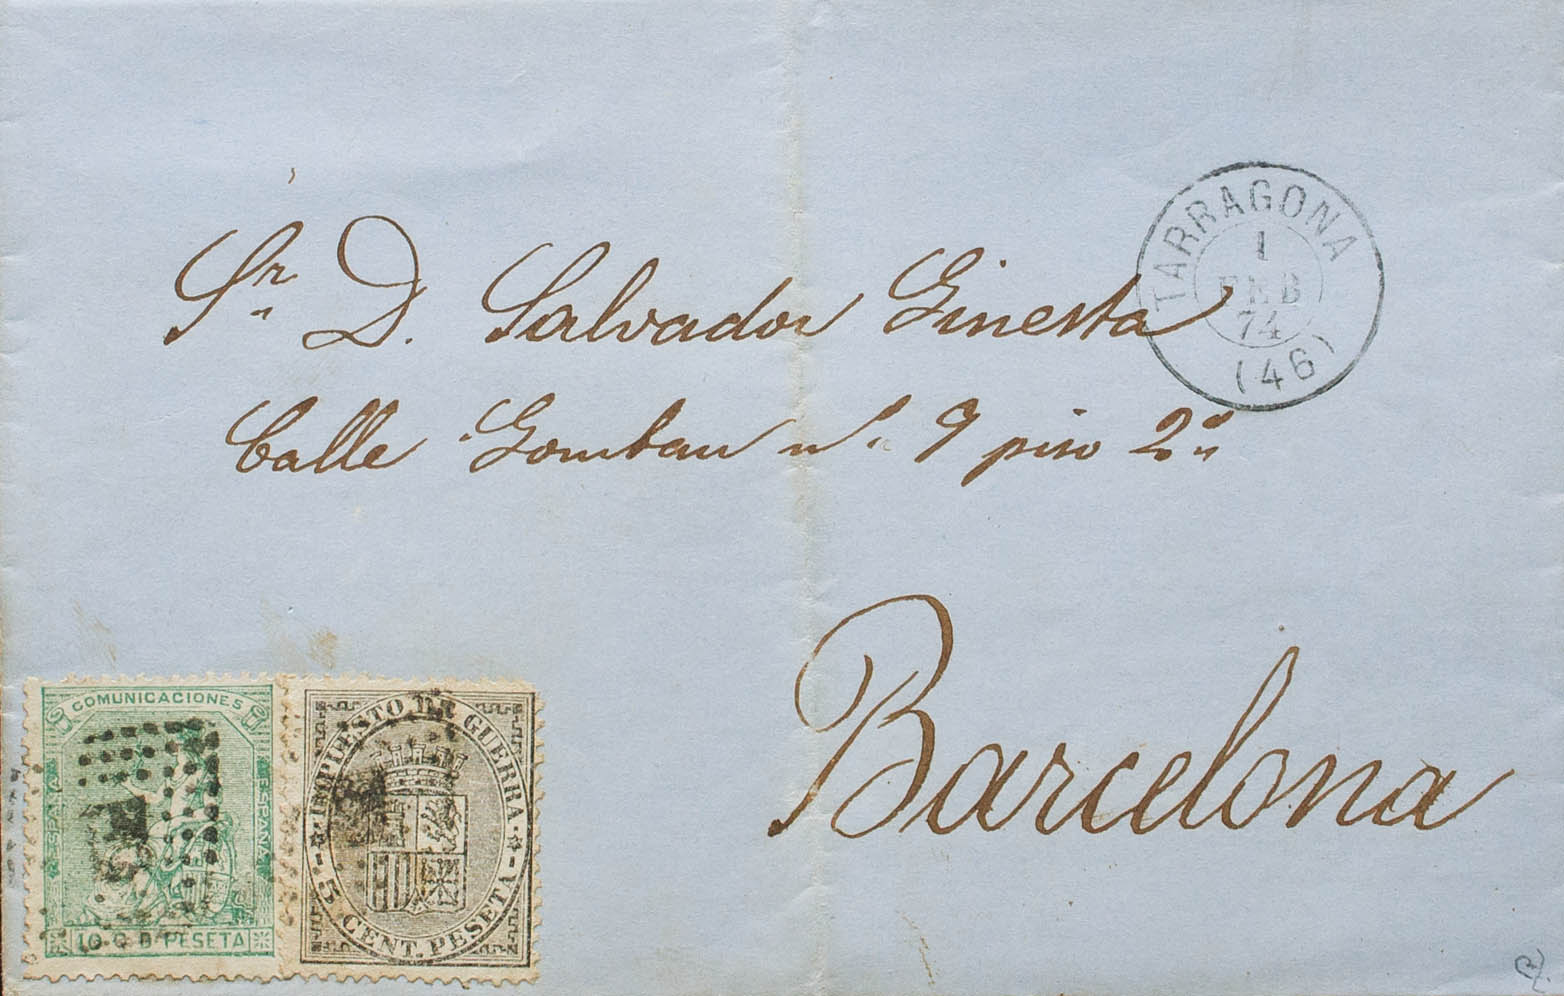 TARRAGONA
1
FEB
74
(46)
Sr. D. Salvador Ginesta
Calle Gombau nº. 9 piso 2º
Barcelona
COMUNICACIONES
ESPAÑA
ESPAÑA
10 C. D PESETA
IMPUESTO DE GUERRA
5 CENT. PESETA